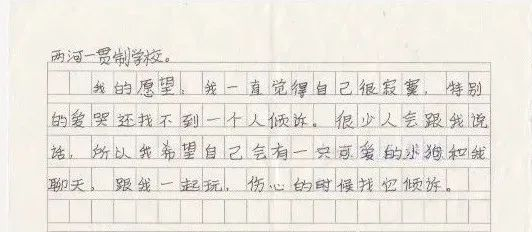 两河一贯制学校。
我的愿望，我一直觉得自己很寂寞，特别
的爱哭还找不到一个人倾诉。很少人会跟我说
话，所以我希望自己会有一只可爱的小狗和我
聊天，跟我一起玩，伤心的时候找它倾诉。